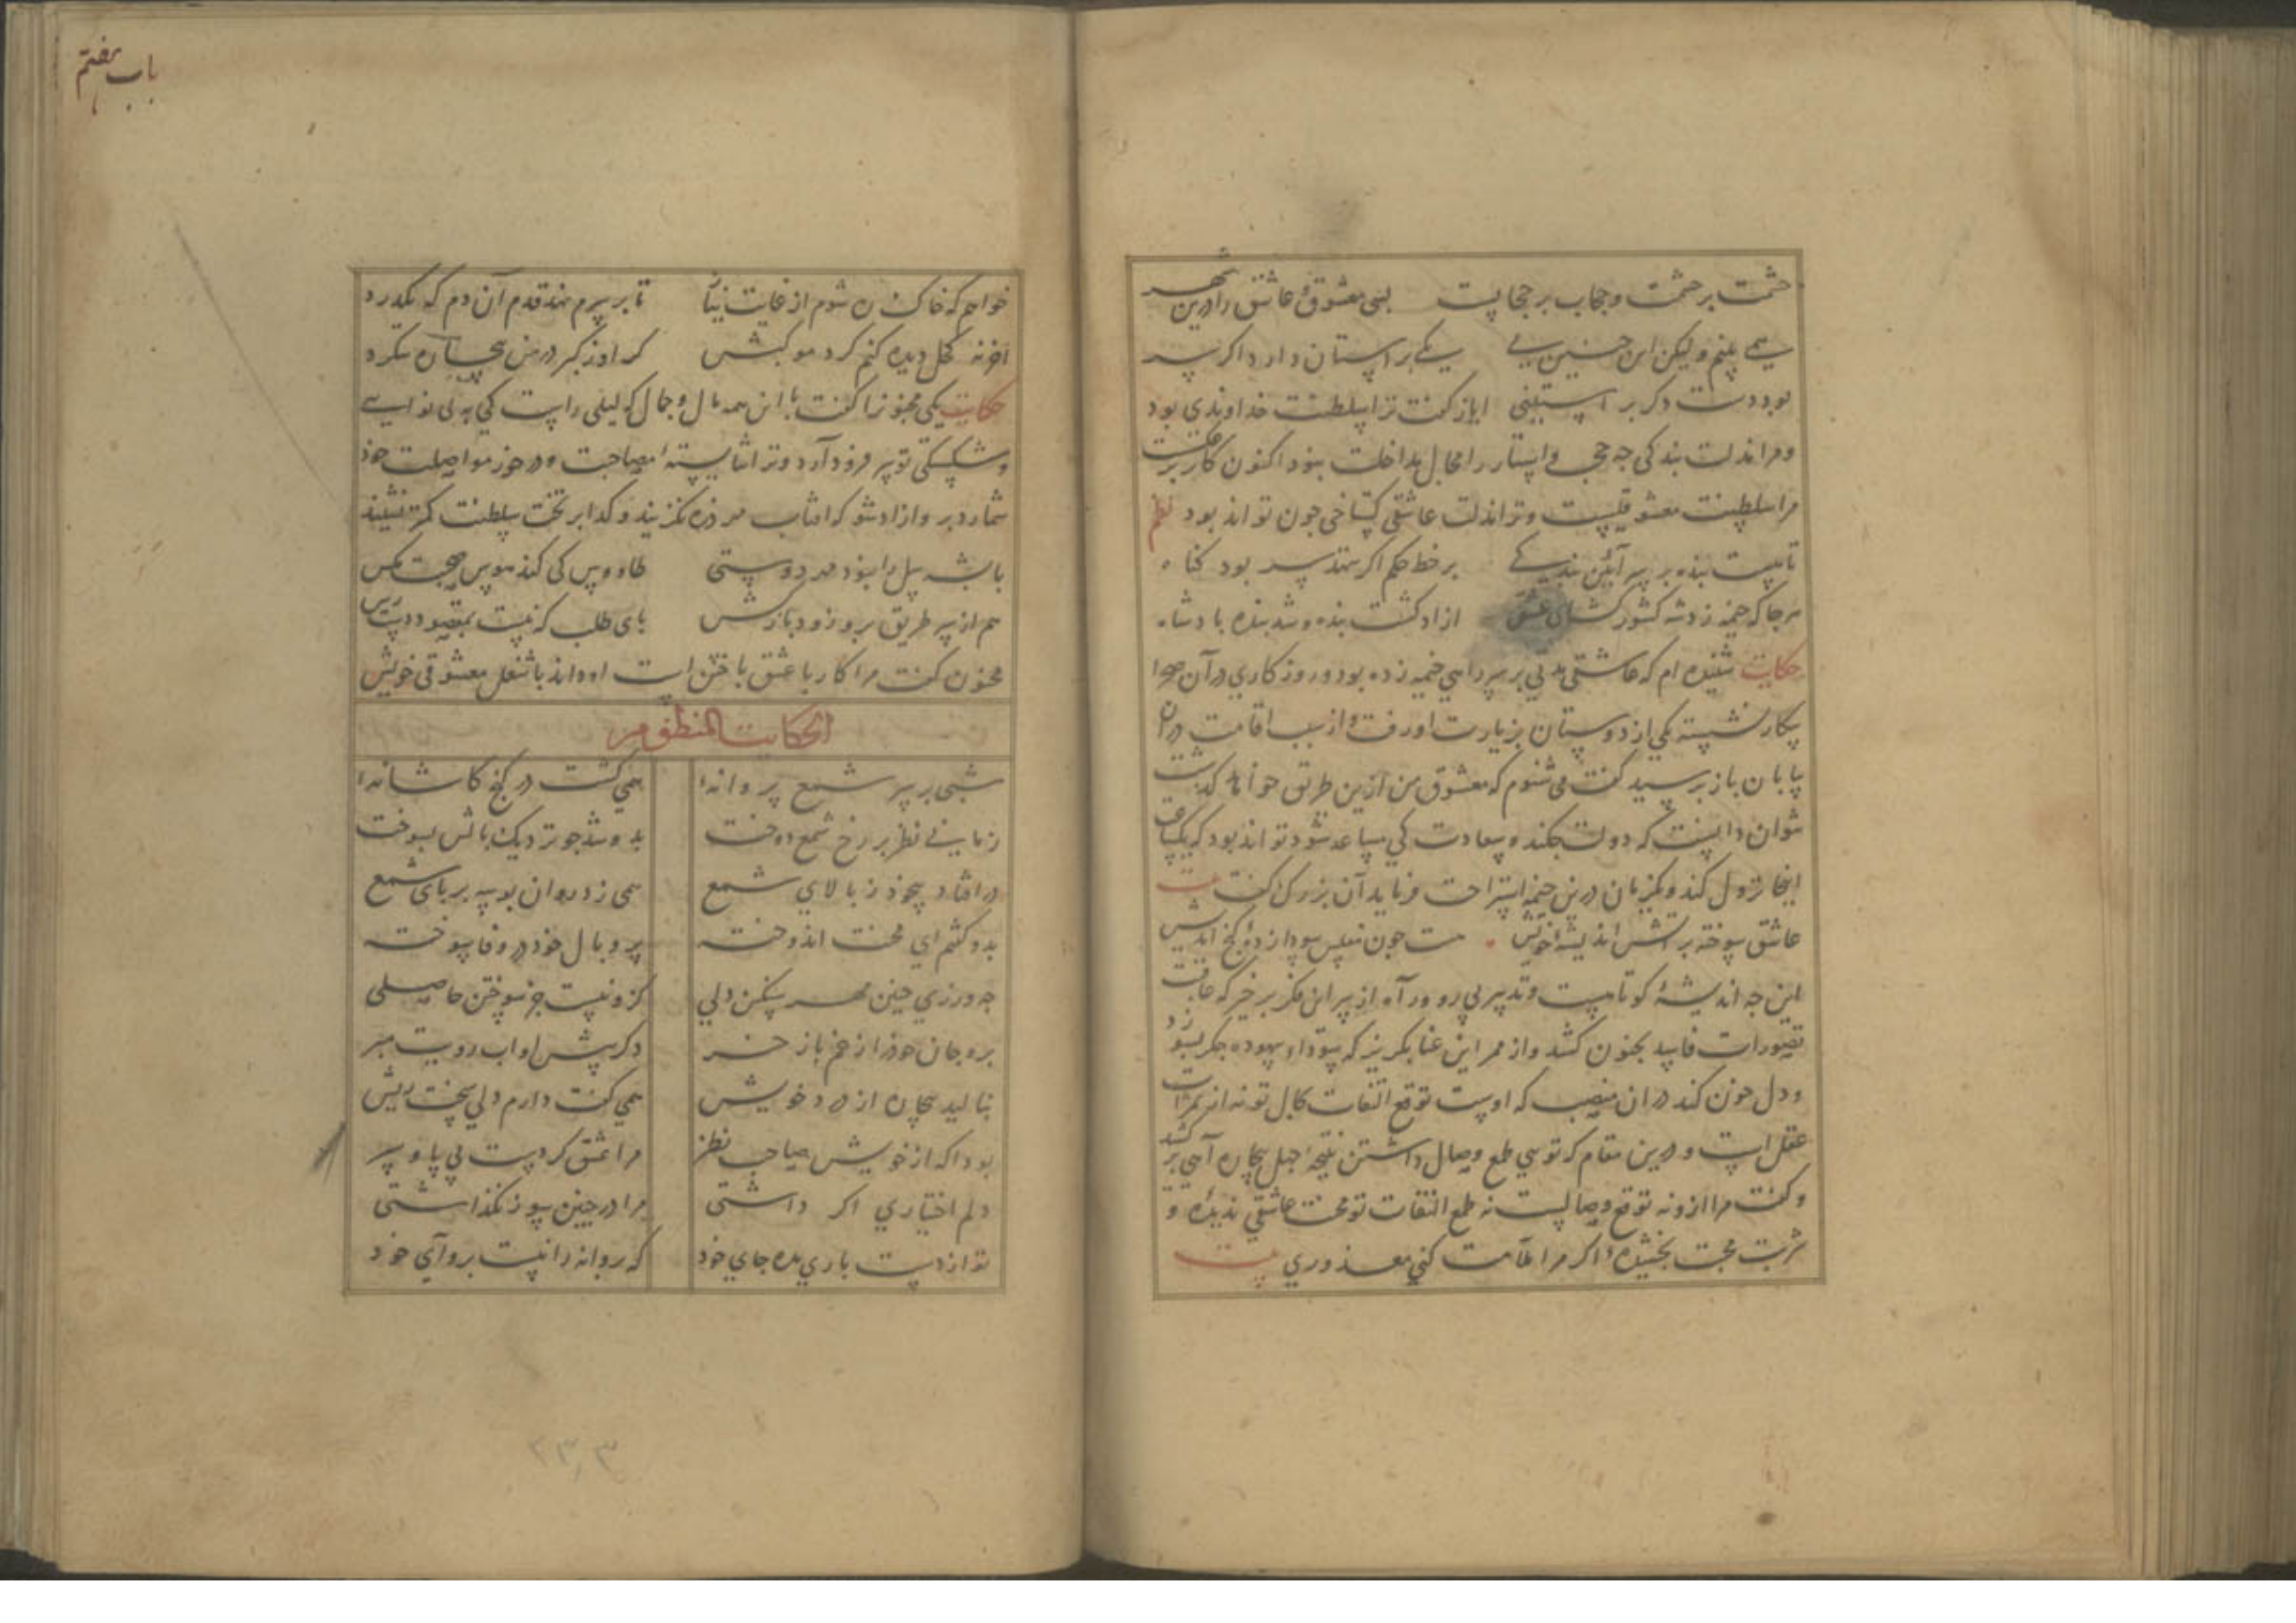 حشمت بر حشمت و حجاب بر حجابیست بسی معشوق و عاشق را درین شهر
همی بینم ولیکن این چنین نی یکی بر استان دارد اگر سر
بود دست دکر بر استینی ایاز کفت ترا سلطنت خداوندی بود
و مرا ذلت بندکی جه حجب و استار را مجال مداخلت بنود اکنون کار بر عکس است
مرا سلطنت معشوقیست و ترا ذلت عاشقی کستاخی جون تواند بود نظم
تا نیست بنده بر سر آئین بندکی بر خط حکم اکر نهد سر بود کناه
هر جا که خیمه زد شه کشورکشای عشق ازاد کشت بنده و شد بنده بادشاه
حکایت شنیده ام که عاشقی مدتی بر سر راهی خیمه زده بود و روزکاری در آن صحرا
بیکار نشسته یکی از دوستان بزیارت او رفت و از سبب اقامت در ان
بیابان باز برسید کفت می شنوم که معشوق من ازین طریق خواهد کذشت
نتوان دانست که دولت جکند و سعادت کی مساعد شود تواند بود که یکساعت
اینجا نزول کند و یکزمان درین خیمه استراحت فرماید آن بزرک کفت بیت
عاشق سوخته بر آتش اندیشه خویش هست جون مفلس سودا زده کج اندیش
این جه اندیشه کوتاهست و تدبیر بی رو و راه از سر این فکر بر خیز که عاقبت
تصورات فاسد بجنون کشد و از ممر این عنا بکریز که سودای بیهوده جکر بسوزد
و دل خون کند در ان منصب که اوست توقع التفات کابل تو نه از ثمرات
عقل است و درین مقام که توی طمع وصال داشتن نتیجه جهل بیچاره آهی بر کشید
و کفت مرا ازو نه توقع وصالیست نه طمع التفات تو محنت عاشقی ندیده و
شربت محبت نچشیده اکر مرا ملامت کنی معذوری بیت
باب هفتم
خواهم که خاک ره شوم از غایت نیاز تا بر سرم نهد قدم آن دم که بکذرد
ورنه کحل دیده کنم کرد موکبش کر او ز کبر در من بیچاره ننکرد
حکایت یکی مجنونرا کفت با این همه مال و جمال که لیلی راست کی به بی نوایی
و شکستکی تو سر فرود آرد و ترا شایسته مصاحبت و در خور مواصلت خود
شمارد برو ازاد شو که افتاب هر ذره نکزیند و کدا بر تخت سلطنت کمتر نشیند
با پشه پیل را نبود هر دوستی طاووس کی کند هوس صحبت مکس
هم از سر طریق برو زود باز کش بای طلب که نیست بمقصود دست رس
مجنون کفت مرا کار با عشق باختن است او داند با شغل معشوقی خویش
الحکایت المنظومه
شبی بر سر شمع پروانه‌ا همی کشت در کنج کاشانه‌ا
زمانی نظر بر رخ شمع دوخت بدو شد جو نزدیک بالش بسوخت
در افتاد بیخود ز بالای شمع همی زد روان بوسه بر بای شمع
بدو کفتم ای محنت اندوخته پر و بال خود در وفا سوخته
جه ورزی جنین مهر سنکین دلی کزو نیست جز سوختن حاصلی
برو جان خود را ز غم باز خر دکر پیش او اب رویت مبر
بنالید بیچاره از درد خویش همی کفت دارم دلی سخت ریش
بود آکه از خویش صاحب نظر مرا عشق کردست بی پا و سر
دلم اختیاری اکر داشتی مرا در چنین سوز نکذاشتی
تو از دست باری مده جای خود که پروانه را نیست پروای خود
۲۳۳